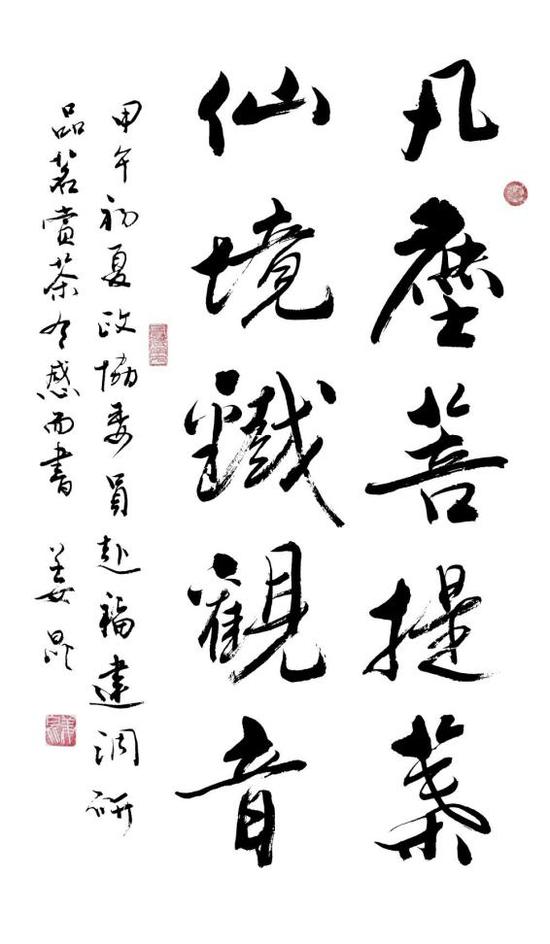 凡塵菩提葉
仙境鐵觀音
甲午初夏政協委員赴福建調研
品茗賞茶有感而書 姜昆